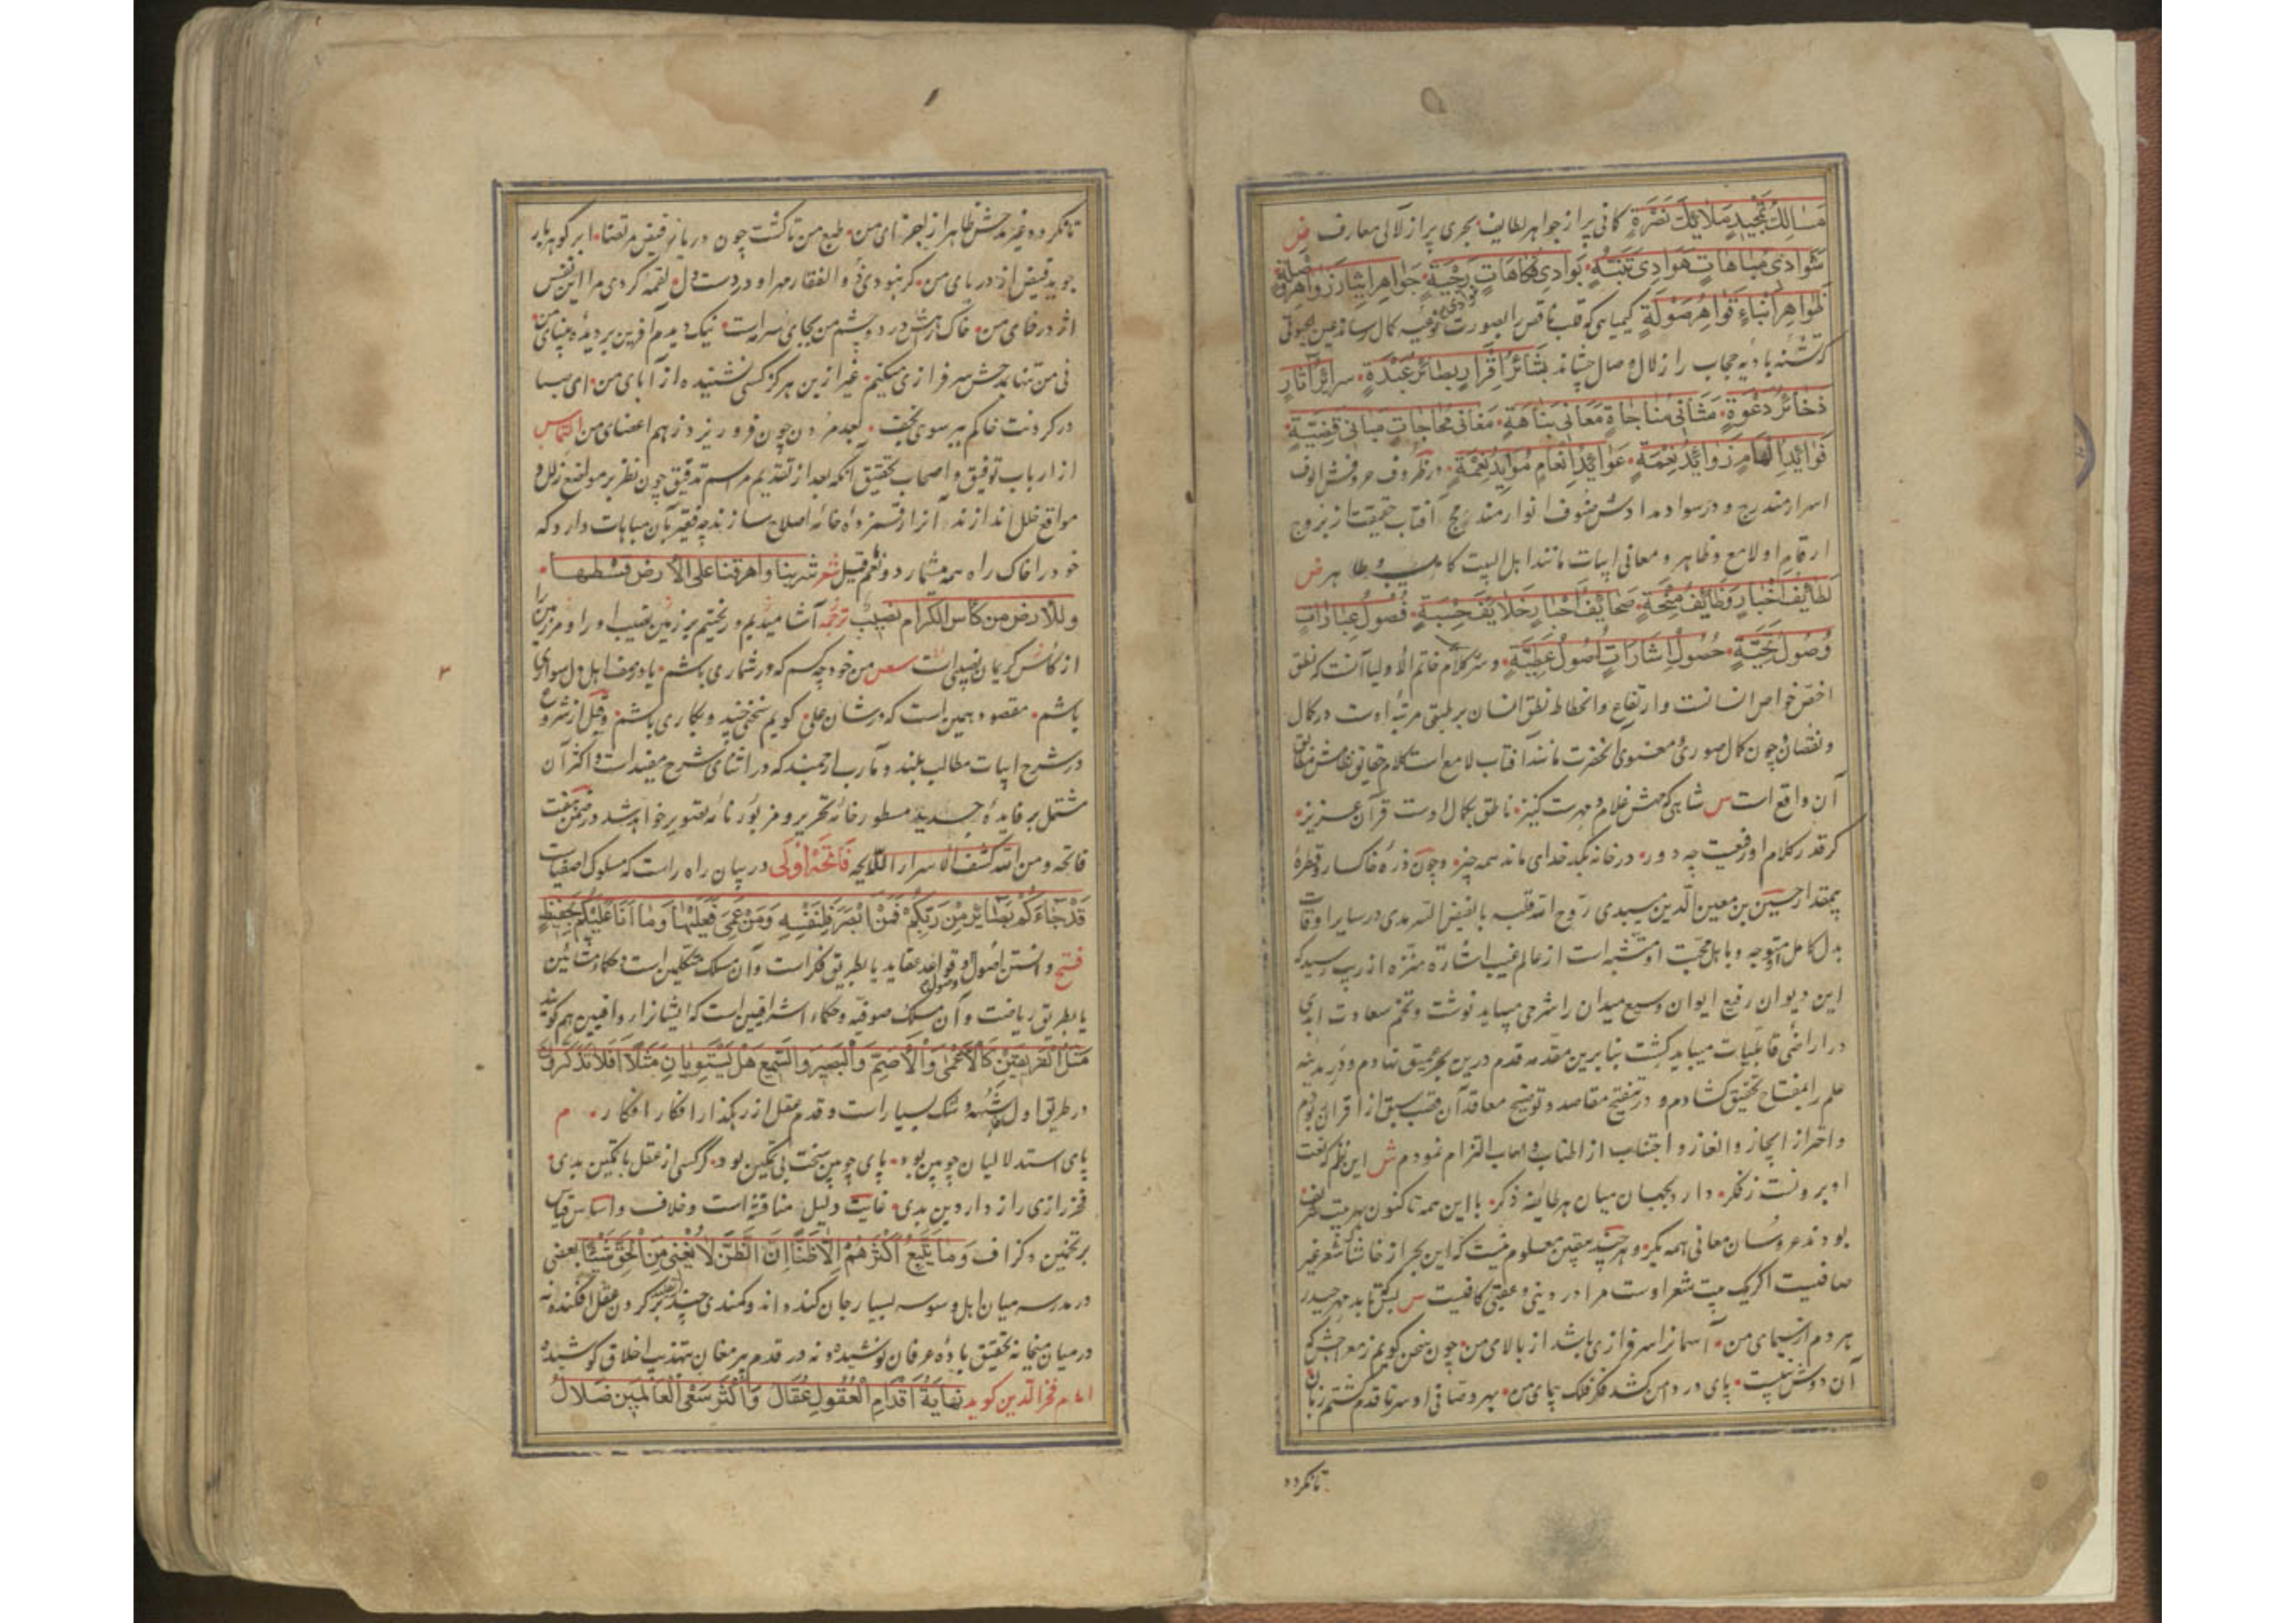 مَسالِكُ تَمجيدِ مَلائِكَ نَضرَةٍ كانى پر از جواهر لطايف بحرى پر از لآلى معارف ض
شَوادى مُباهاتٍ هَوادى تَنبُّهٍ بَوادى فُكاهاتٍ رَجيّةٍ جَواهِر ايثارٍ زَواهِر وُصلةٍ
ظَواهِر اَنباءٍ قَواهِر صَولَةٍ كيميايى كه قلب ناقص را بصورت نوعيه كمال رساند عين الحيوتى
كه تشنه باديه حجاب را زلال وصال چشاند بَشائر اِقرارٍ بصائر عَبدَةٍ سرائر آثارٍ
ذَخائر دَعوَةٍ مَثانى مُناجاة مَعانى بناهة مَغانى مُحاجات مَبانى قضيّة
فَوائد اِلهامٍ زَوائد نِعمَةٍ عَوائد اِنعامٍ مَوايد نِعمَةٍ در ظروف حروفش الوف
اسرار مندرج و در سواد مدادش صنوف انوار مندمج آفتاب حقيقت از بروج
ارقام او لامع و ظاهر و معانى ابيات مانند اهل البيت طاهر ض
لَطايف اخبارٍ وَظايف مِنحَةٍ صَحايف اَحبارٍ خَلايف حِسبَةٍ فُصول عِباراتٍ
وُصول تَحيّةٍ حُصول اشاراتٍ اُصول عَطيّةٍ و سر كلام خاتم الاوليا آنست كه نطق
اخصّ خواص انسانست و ارتفاع و انحطاط نطق انسان بر طبق مرتبه اوست در كمال
و نقصان و چون كمال صورى و معنوى آنحضرت مانند آفتاب لامع است كلام حقايق نظامش مطابق
آن واقع است س شاهى كه مهش غلام و مهرست كنيز ناطق بكمال اوست قرآن عزيز
كر قدر كلام او رفيعست چه دور در خانه بكدخداى ماند همه چيز و چون ذره خاكسار و قطره
بيمقدار حسين بن معين الدين ميبدى روّح الله قلبه بالفيض السرمدى در ساير اوقات
بدل كامل متوجه و باهل محبت او متشبه است از عالم غيب اشاره منزه از ريب رسيد كه
اين ديوان رفيع ايوان وسيع ميدان را شرحى ميبايد نوشت و تخم سعادت ابدى
در اراضى قابليات ميبايد كشت بنابرين مقدمه قدم درين بحر عميق نهادم و در مدينه
علم را بمفتاح تحقيق كشادم و در تنقيح مقاصد و توضيح معاقد آن قصب سبق از اقران بودم
و احتراز از ايجاز و الغاز و اجتناب از اطناب و اسهاب التزام نمودم ش اين نظم كه نعت
او برونست ز فكر دارد بجهان ميان هر طايفه ذكر با اين همه تا كنون بهر بيت شريف
بودند عروسان معانى همه بكر و هر چند بيقين معلوم نيست كه اين بحر از خاشاك شعر غير
صافيست اگر يك بيت شعر اوست مرا در دينى و عقبى كافيست س بسكه تابد مهر حيدر
هر دم از سيماى من آسمانرا سرفرازى باشد از بالاى من چون سخن كويم ز معراجش كه
آن دوش نبيست پاى در دامن كشد فكر فلك پيماى من بهر وصّافى او سر تا قدم كشتم زبان
تا نكردد
تا نكردد غير مدحش ظاهر از اجزاى من طبع من تا كشت چون دريا ز فيض مرتضا ابر كوهر بار
جويد فيض از درياى من كر نبودى ذوالفقار مهر او در دست دل لقمه كردى مرا اين نفس
اژدرخاى من خاك راهش در دو چشم من بجاى سرمه است نيك ديدم آفرين بر ديده بيناى من
نى من تنها بمدحش سرفرازى ميكنم غير ازين هركز كسى نشنيده از آباى من اى صبا
در كردنت خاكم ببر سوى نجف بعد مردن چون فرو ريزد ز هم اعضاى من التماس
از ارباب توفيق و اصحاب تحقيق آنكه بعد از تقديم مراسم تدقيق چون نظر بر مواضع زلل و
مواقع خلل اندازند آنرا رقمزده خامه اصلاح سازند چه فقير بآن مباهات دارد كه
خود را خاك راه همه ميشمارد و نعم قيل شعر شربنا واهرقنا على الارض قسطها
وللارض من كأس الكرام نصيب ترجمه آشاميديم و ريختيم بر زمين نصيب او را و مر زمين را
از كأس كريمان نصيبى است س من خود چه كسم كه در شمارى باشم يا در صف اهل دل سوارى
باشم مقصود همين است كه در شان على كويم سخنى چند و بكارى باشم و قبل از شروع
در شرح ابيات مطالب بلند و مآرب ارجمند كه در اثناى شرح مفيد است و اكثر آن
مشتمل بر فايده جديد مسطور خامه تحرير و مزبور نامه تصوير خواهد شد در ضمن هفت
فاتحه و من الله كشف الاسرار اللايحه فاتحهٔ اولى در بيان راه راست كه مسلوك اصفياست
قَد جاءَكُم بَصائِرُ مِن رَبِّكُم فَمَن اَبصَرَ فَلِنَفسِه وَمَن عَمِىَ فَعَلَيها وَما اَنَا عَلَيكُم بِحَفيظٍ
فتح دانستن اصول و قواعد عقايد يا بطريق فكر است و آن مسلك متكلمين است و حكماء مشائين
يا بطريق رياضت و آن مسلك صوفيه و حكماء اشراقيين است كه ايشانرا رواقيين هم كويند
مَثَلُ الفَريقَينِ كَالاَعمى وَالاَصَمِّ وَالبَصيرِ وَالسَّميعِ هَل يَستَوِيانِ مَثَلًا اَفَلا تَذَكَّرُونَ
در طريق اول شبهه و شك بسيار است و قدم عقل از رهكذار افكار افكار م
پاى استدلاليان چوبين بود پاى چوبين سخت بى تمكين بود كر كسى از عقل با تمكين بدى
فخر رازى رازدار دين بدى غايت دليل مناقضه است و خلاف و اساس قياس
بر تخمين و كزاف وَما يَتَّبِعُ اَكثَرُهُم اِلّا ظَنًّا اِنَّ الظَّنَّ لا يُغنى مِنَ الحَقِّ شَيئًا بعضى
در مدرسه ميان اهل وسوسه بسيار جان كنده اند و كمندى چند بر كردن عقل افكنده نه
در ميان ميخانه تحقيق باده عرفان نوشيده و نه در قدم پير مغان بتهذيب اخلاق كوشيده
امام فخر الدين كويد نِهايَةُ اَقدامِ العُقولِ عِقالُ وَاَكثَرُ سَعىِ العالَمينَ ضَلالُ